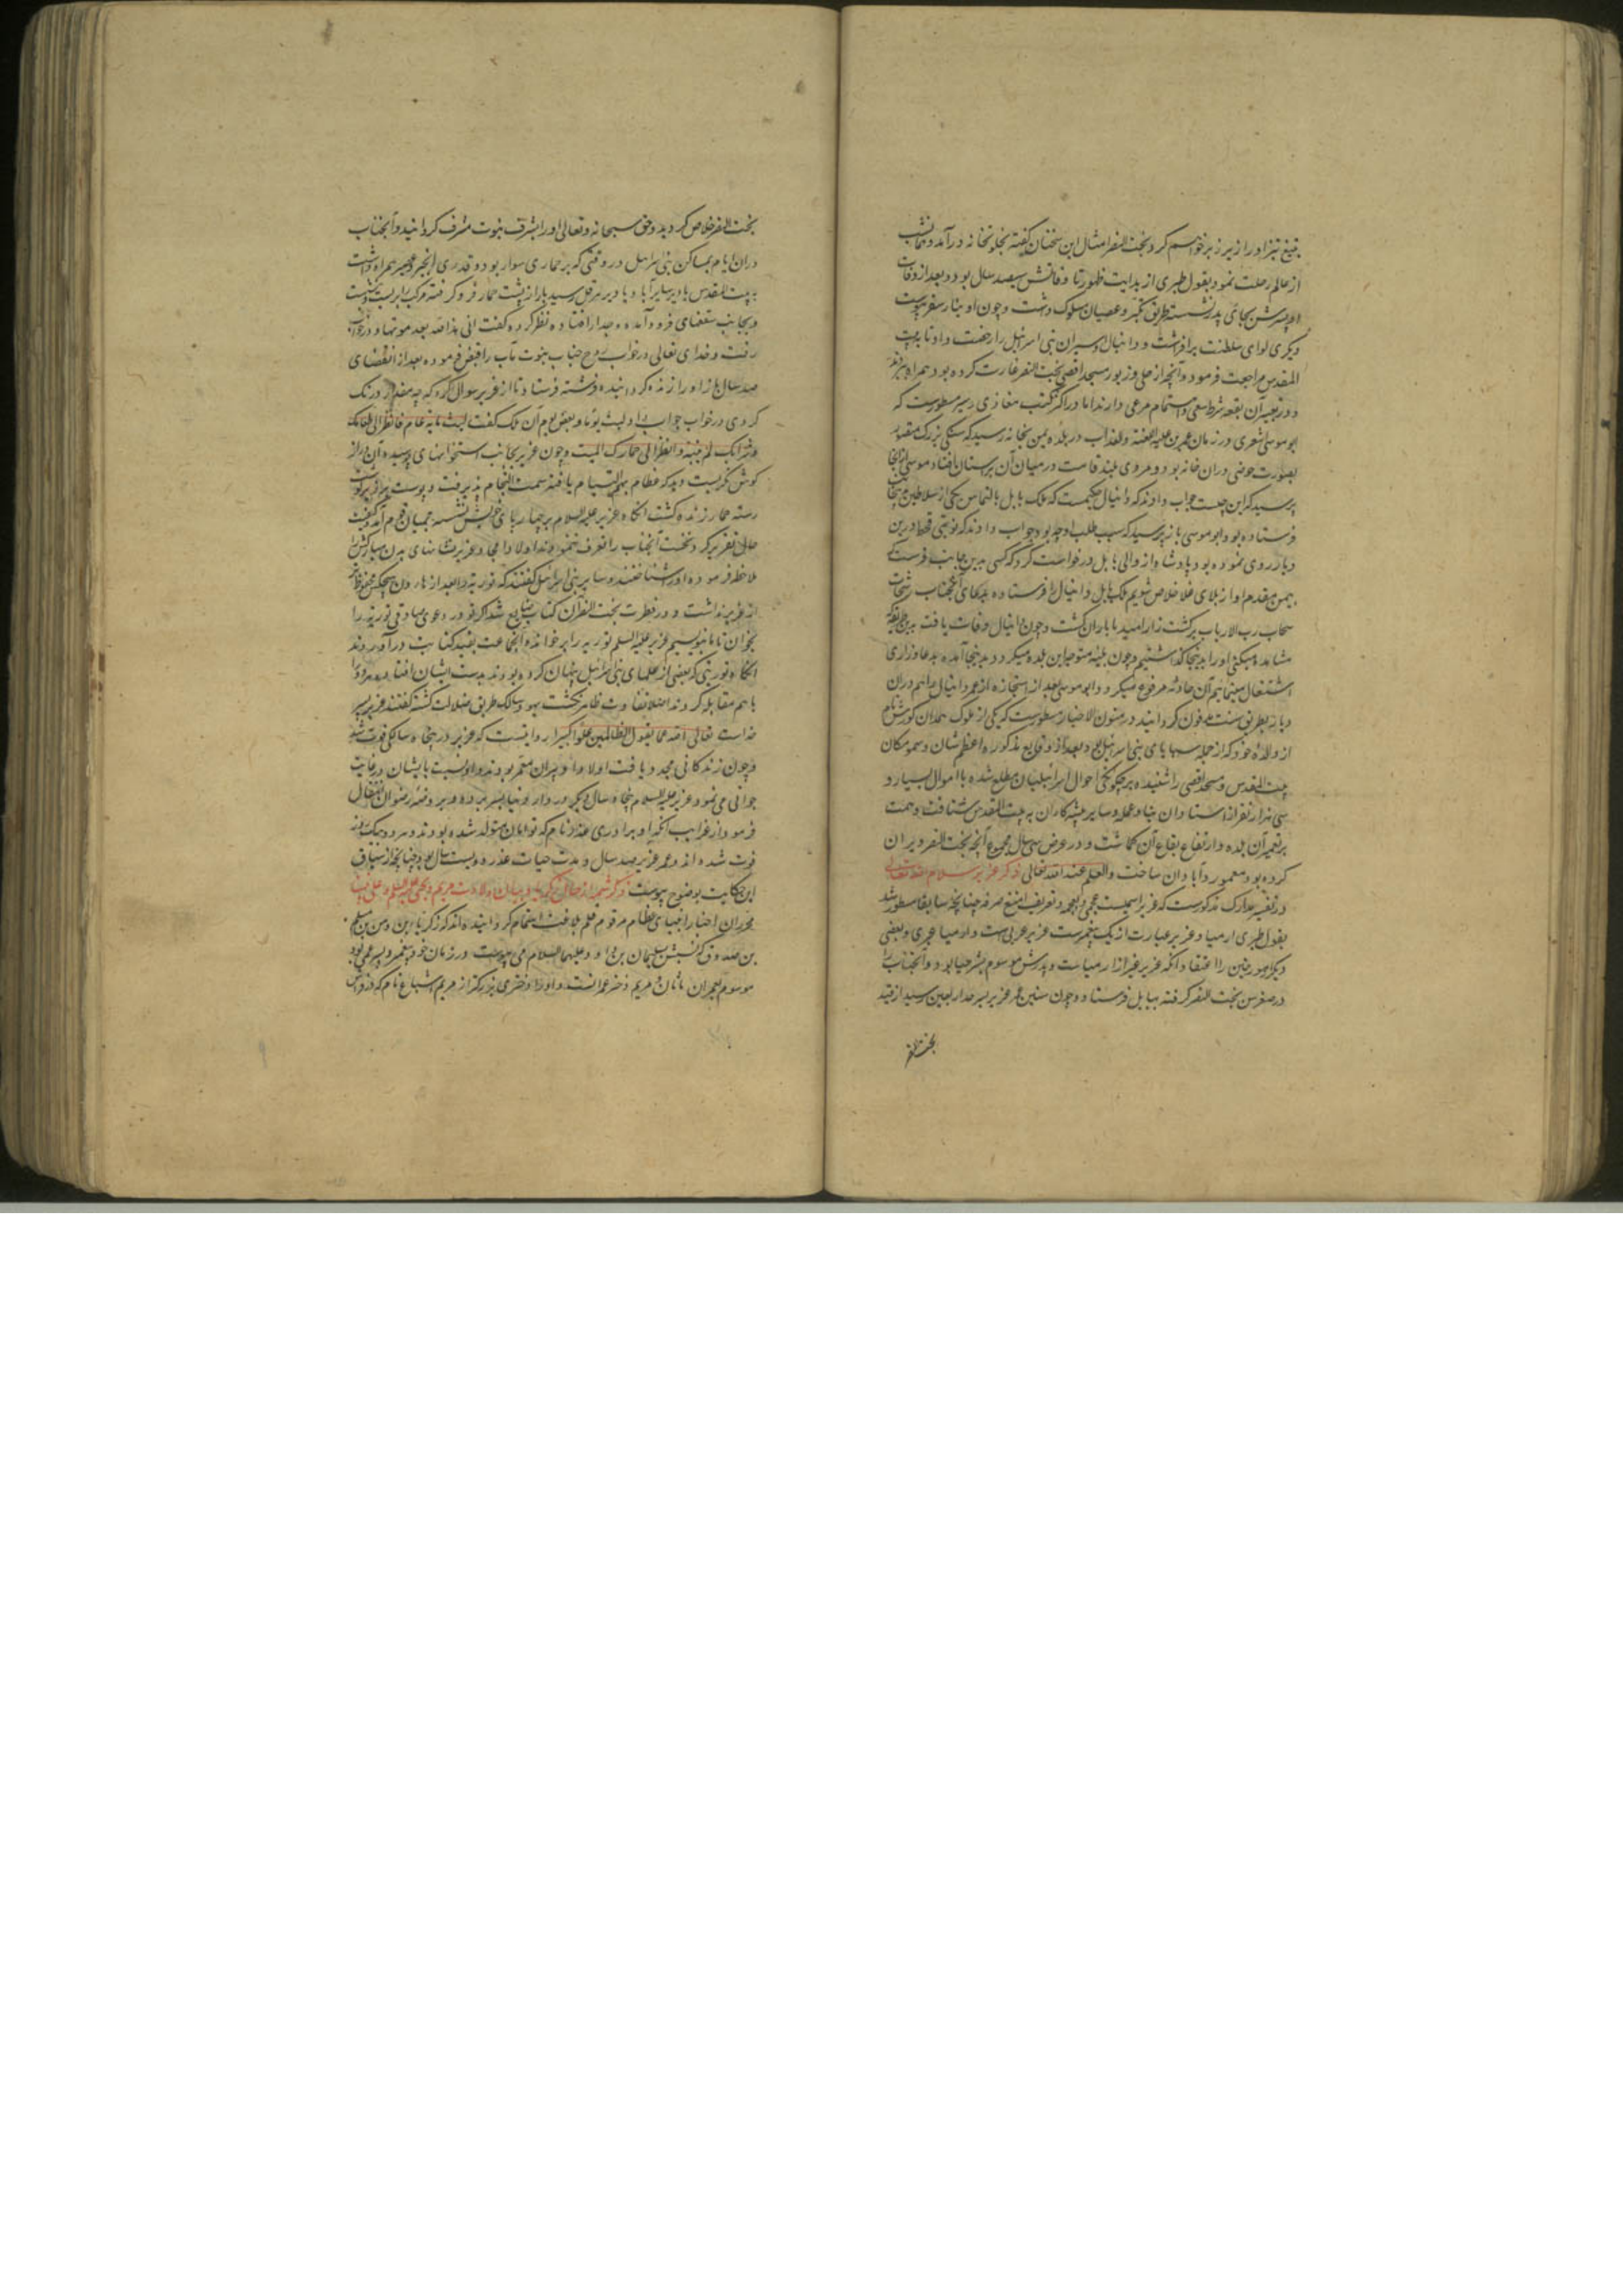 بتیغ تیز او را از زیر زبر خواهم کرد و بخت النصر امثال این سخنان گفته بخلوتخانه درآمد و همانشب
از عالم رحلت نمود بقول طبری از بدایت ظهور تا وفاتش سیصد سال بود و بعد از وفات
او پسرش بجای پدر نشسته طریق تکبر و عصیان مسلوک داشت و چون او بنار سقر پیوست
دیگری لوای سلطنت برافراشت و دانیال و اسیران بنی اسرائیل را رخصت داد تا به بیت
المقدس مراجعت فرمود و آنچه از حلی و زیور مسجد اقصی بخت النصر غارت کرده بود همراه بردند
و در تعمیر آن بقعه شرط سعی و اهتمام مرعی دارند اما در اکثر کتب مغازی و سیر مسطورست که
ابو موسی اشعری در زمان عمر بن علیه اللعنة والعذاب در بلده یمن بخانه رسید که سنگی بزرگ منقور
بصورت حوضی در آن خانه بود و مردی بلند قامت در میان آن برستان افتاده ابو موسی از آنجا
پرسید که این چیست جواب دادند که دانیال حکیمست که ملک بابل بالتماس یکی از سلاطین اینجا
فرستاده بود ابو موسی باز پرسید که سبب طلب او چه بود جواب دادند که نوبتی قحط درین
دیار روی نموده بود پادشاه از والی بابل درخواست کرد که کسی بدین جانب فرست که
بیمن مقدم او از بلای غلا خلاص شویم ملک بابل دانیال را فرستاده بدعای آنجناب رشحات
سحاب رب الارباب بر کشت زار امید ما باران گشت و چون دانیال وفات یافت بدین طریق که
مشاهده میکنی او را اینجا گذاشتیم و چون بلیه متوجه این بلده میگردد بدینجا آمده بدعا و زاری
اشتغال مینماییم آن حادثه مرفوع میگردد ابو موسی بعد از استجازه از عمر دانیال را هم در آن
دیار بطریق سنت مدفون گردانید در متون الاخبار مسطورست که یکی از ملوک همدان کورش نام
از والده خود که از جمله سبایای بنی اسرائیل بود بعد از وقایع مذکوره اعظم شان و سمو مکان
بیت المقدس و مسجد اقصی را شنیده بر چگونگی احوال اسرائیلیان مطلع شده با اموال بسیار و
سی هزار نفر از استادان بنا و عمله و سایر پیشه کاران به بیت المقدس شتافت و همت
بر تعمیر آن بلده و ارتفاع بقاع آن گماشت و در عرض سی سال مجموع آنچه بخت النصر ویران
کرده بود معمور و آبادان ساخت والعلم عند الله تعالی ذکر عزیر سلام الله تعالی
در تفسیر مدارک مذکورست که عزیر اسمیست عجمی و بعجمه و تعریف امتنع صرفه چنانچه سابقا مسطور شد
بقول طبری ارمیا و عزیر عبارت از یک پیغمبرست عزیر عربی است و ارمیا عبری و بعضی
دیگر مورخین را اعتقاد آنکه عزیر غیر از ارمیاست و پدرش موسوم بشرحیا بود و آنجناب را
در صغر سن بخت النصر گرفته ببابل فرستاد و چون سنین عمر عزیر بسرحد اربعین رسید از قید
بخت النصر
بخت النصر خلاص گردید و حق سبحانه و تعالی او را بشرف نبوت مشرف گردانید و آنجناب
در آن ایام بمساکن بنی اسرائیل در وقتی که بر حماری سوار بود و قدری انجیر و عصیر همراه داشت
به بیت المقدس یا دیر سایر آباد یا دیر هرقل رسید بار از پشت حمار فرو گرفته مرکب را بر بست
و بجانب سقفهای فرود آمده و جدار افتاده نظر کرده گفت انی یحیی هذه الله بعد موتها و در خواب
رفت و خدای تعالی در خواب روح جناب نبوت مآب را قبض فرموده بعد از انقضای
صد سال باز او را زنده گردانیده فرشته فرستاد تا از عزیر سوال کرد که چه مقدار درنگ
کردی در خواب جواب داد لبثت یوما او بعض یوم آن ملک گفت لبثت مایة عام فانظر الی طعامک
و شرابک لم یتسنه وانظر الی حمارک المیت و چون عزیر بجانب استخوانهای پوسیده آن دراز
گوش نگریست دید که عظام بهم التیام یافته سمت انجام پذیرفت و پوست بر او
رسته حمار زنده گشت آنگاه عزیر علیه السلام بر چهارپای خویش نشسته بمیان قوم آمد و کیفیت
حال تقریر کرد و نخست آنجناب را تعرف ننمودند اولاد امجاد عزیر نشانهای بدن مبارکش را
ملاحظه فرموده او را شناختند و سایر بنی اسرائیل گفتند که توریة را بعد از هارون هیچکس محفوظ تر
از عزیر نداشت و در فطرت بخت النصر آن کتاب ضایع شد اگر تو در دعوی صادقی توریة را
بخوان تا ما بنویسیم عزیر علیه السلم توریه را بر خوانده آنجماعت بقید کتابت درآوردند
آنگاه توریتی که بعضی از علمای بنی اسرائیل پنهان کرده بودند بدست ایشان افتاده هر دو را
با هم مقابله کردند اصلا تفاوت ظاهر نگشت یهود سالک طریق ضلالت گشته گفتند عزیر پسر
خداست تعالی الله عما یقول الظالمین علوا کبیرا روایتست که عزیر در پنجاه سالگی فوت شد
و چون زندگانی مجدد یافت اولاد او پیران معمر بودند و او نسبت بایشان در غایت
جوانی می نمود عزیر علیه السلام پنجاه سال دیگر در دار دنیا بسر برده و بروضه رضوان انتقال
فرمود از غرایب آنکه او برادری عذر نام که توامان متولد شده بودند و هر دو بیک روز
فوت شده اند و عمر عزیر صد سال و مدت حیات عذره دویست سال بود چنانچه از سیاق
این حکایت بوضوح پیوست ذکر شمه از حال زکریا و بیان ولادت مریم و یحیی علیه السلم و علی نبینا
محرران اخبار انبیای عظام مرقوم قلم بلاغت اختتام گردانیده اند که زکریا ابن دمن بن مسلم
بن صدوق که نسبش بسلیمان بن داود علیهما السلام می پیوست در زمان خود پیغمبر و پسر عمی بود
موسوم بعمران ماثان و مریم دختر عمرانست و او را دختری بزرگتر از مریم اشباع نام که